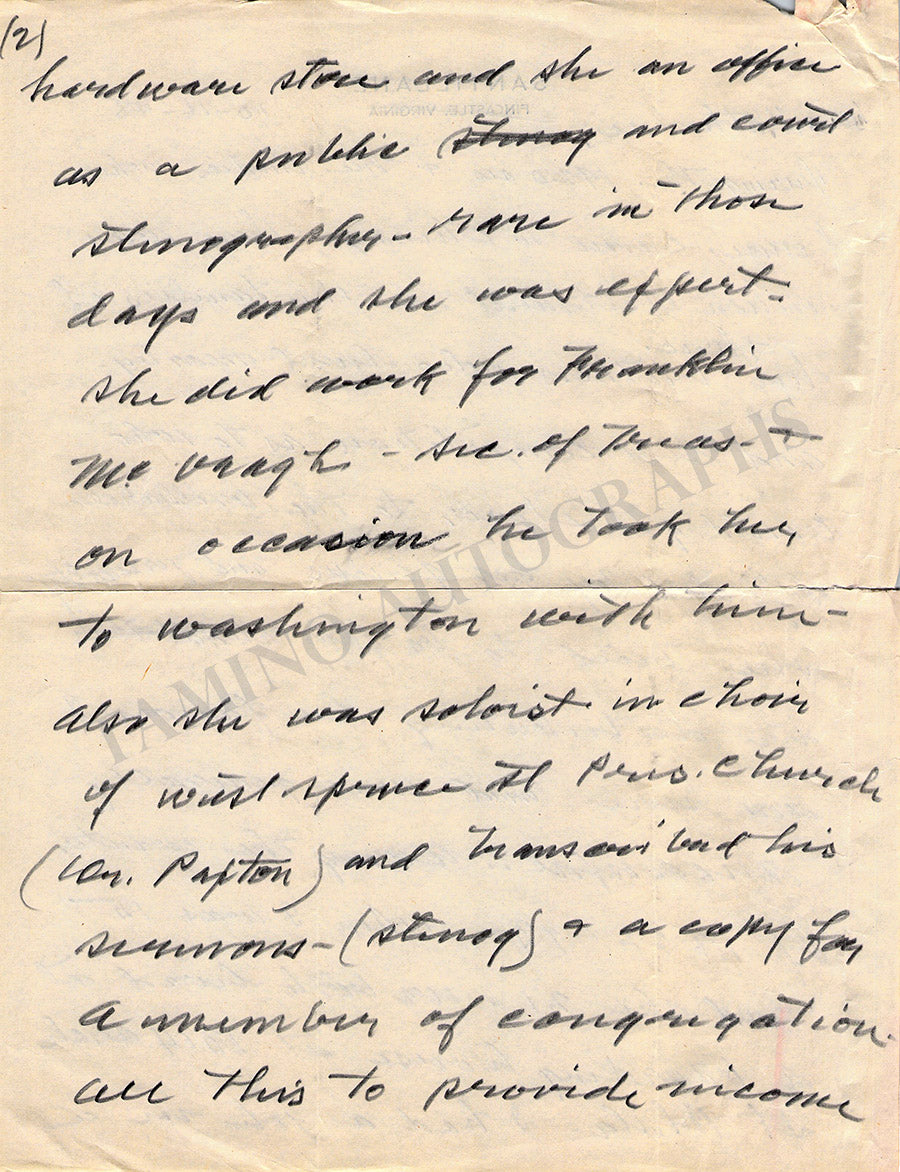 (2)
hardware store and she an office
as a public stenog and court
stenographer - rare in those
days and she was expert -
she did work for Franklin
Mc Vaagh - sec. of Treas - &
on occasion he took her
to Washington with him -
also she was soloist in choir
of west spruce St Pres. Church
(Dr. Paxton) and transcribed his
sermons - (stenog) & a copy for
a member of congregation.
all this to provide income
TAMINO AUTOGRAPHS
FINCASTLE, VIRGINIA